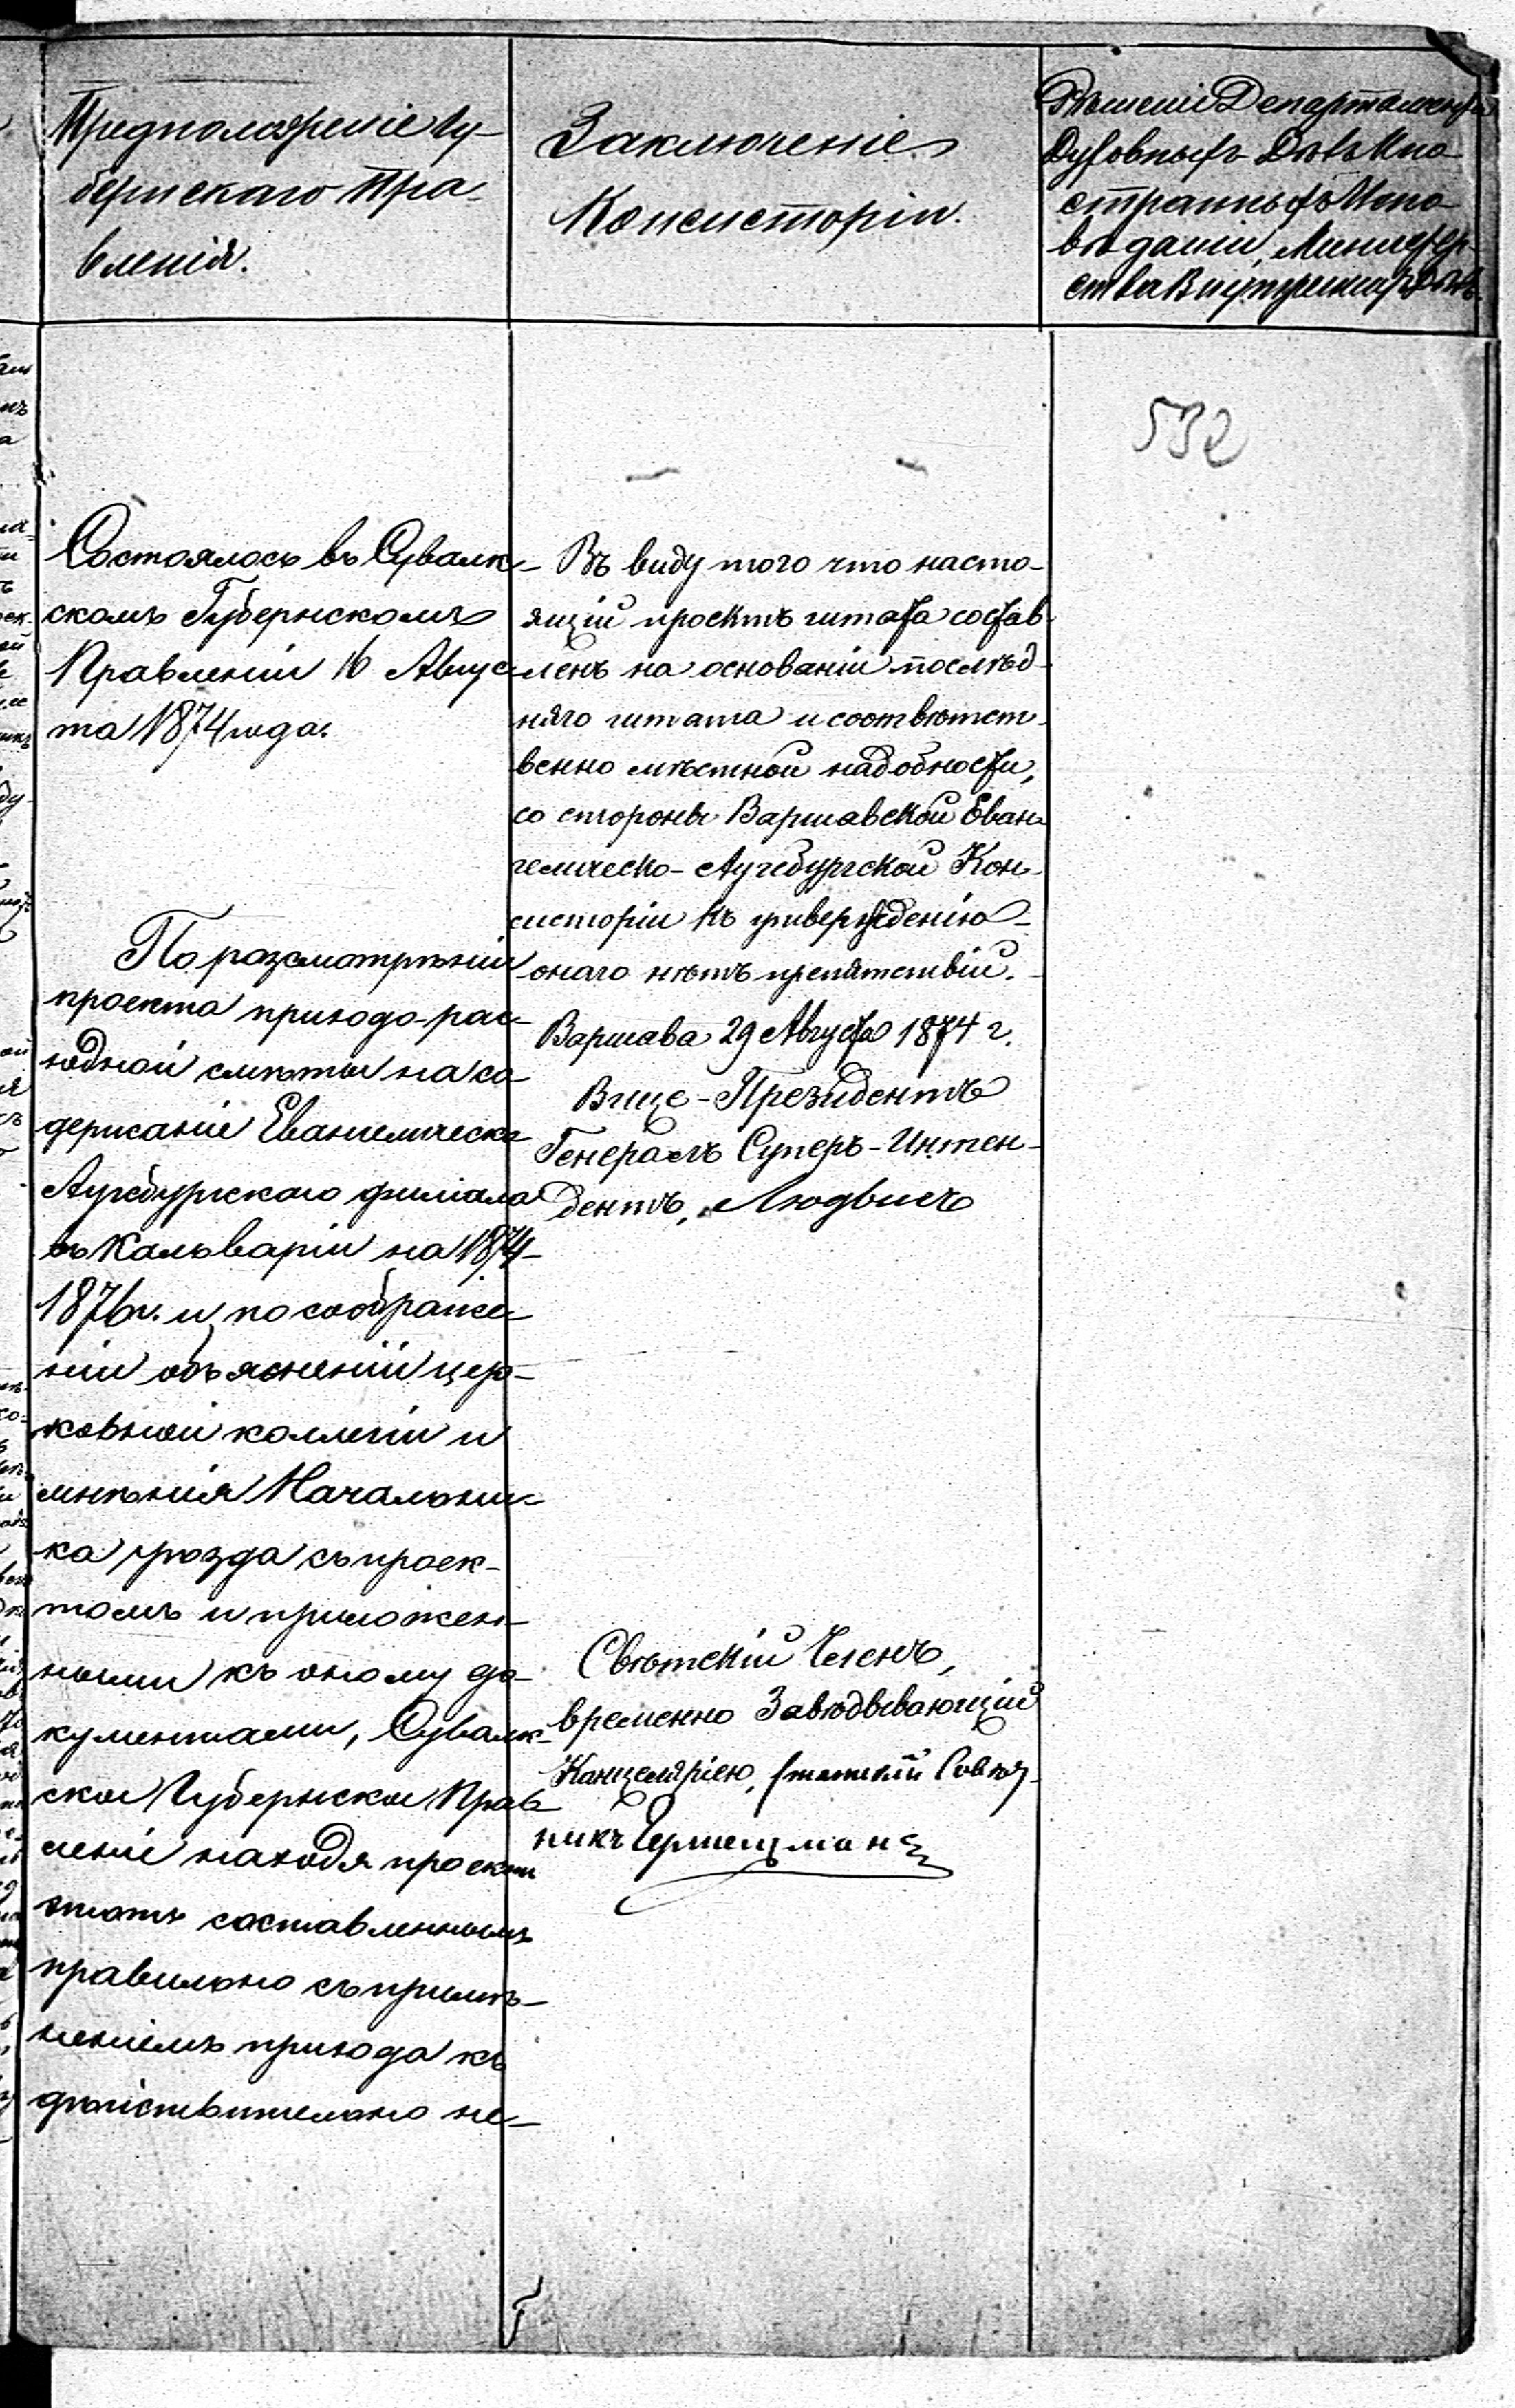 Предположеніе Гу-
бернскаго Пра-
вленія.
Заключеніе
Консисторіи.
Рѣшеніе Департамента
Духовныхъ Дѣлъ Ино-
странныхъ Испо-
вѣданій, Министер-
ства Внутреннихъ Дѣлъ.
532
Состоялось въ Сувалк-
скомъ Губернскомъ
Правленіи 16 Авгус-
та 1874 года.
По разсмотрѣніи
проекта приходо-рас-
ходной смѣты на со-
держаніе Евангелическо
Аугсбургскаго филіала
въ Кальваріи на 1874-
1876 г. и по соображе-
ніи объясненій цер-
ковной коллегіи и
мнѣнія Начальни-
ка уѣзда съ проек-
томъ и приложен-
ными къ оному до-
кументами, Сувалк-
ское Губернское Прав-
леніе находя проектъ
этотъ составленнымъ
правильно съ примѣ-
неніемъ прихода къ
дѣйствительно не-
Въ виду того что насто-
ящій проектъ штата состав-
ленъ на основаніи послѣд-
няго штата и соотвѣтст-
венно мѣстной надобности,
со стороны Варшавской Еван-
гелическо-Аугсбургской Кон-
систоріи къ утвержденію
онаго нѣтъ препятствій.
Варшава 29 Августа 1874 г.
Вице-Президентъ
Генералъ Суперъ-Интен-
дентъ, Людвигъ
Свѣтскій Членъ,
временно Завѣдывающій
Канцеляріею, Статскій Совѣт-
никъ